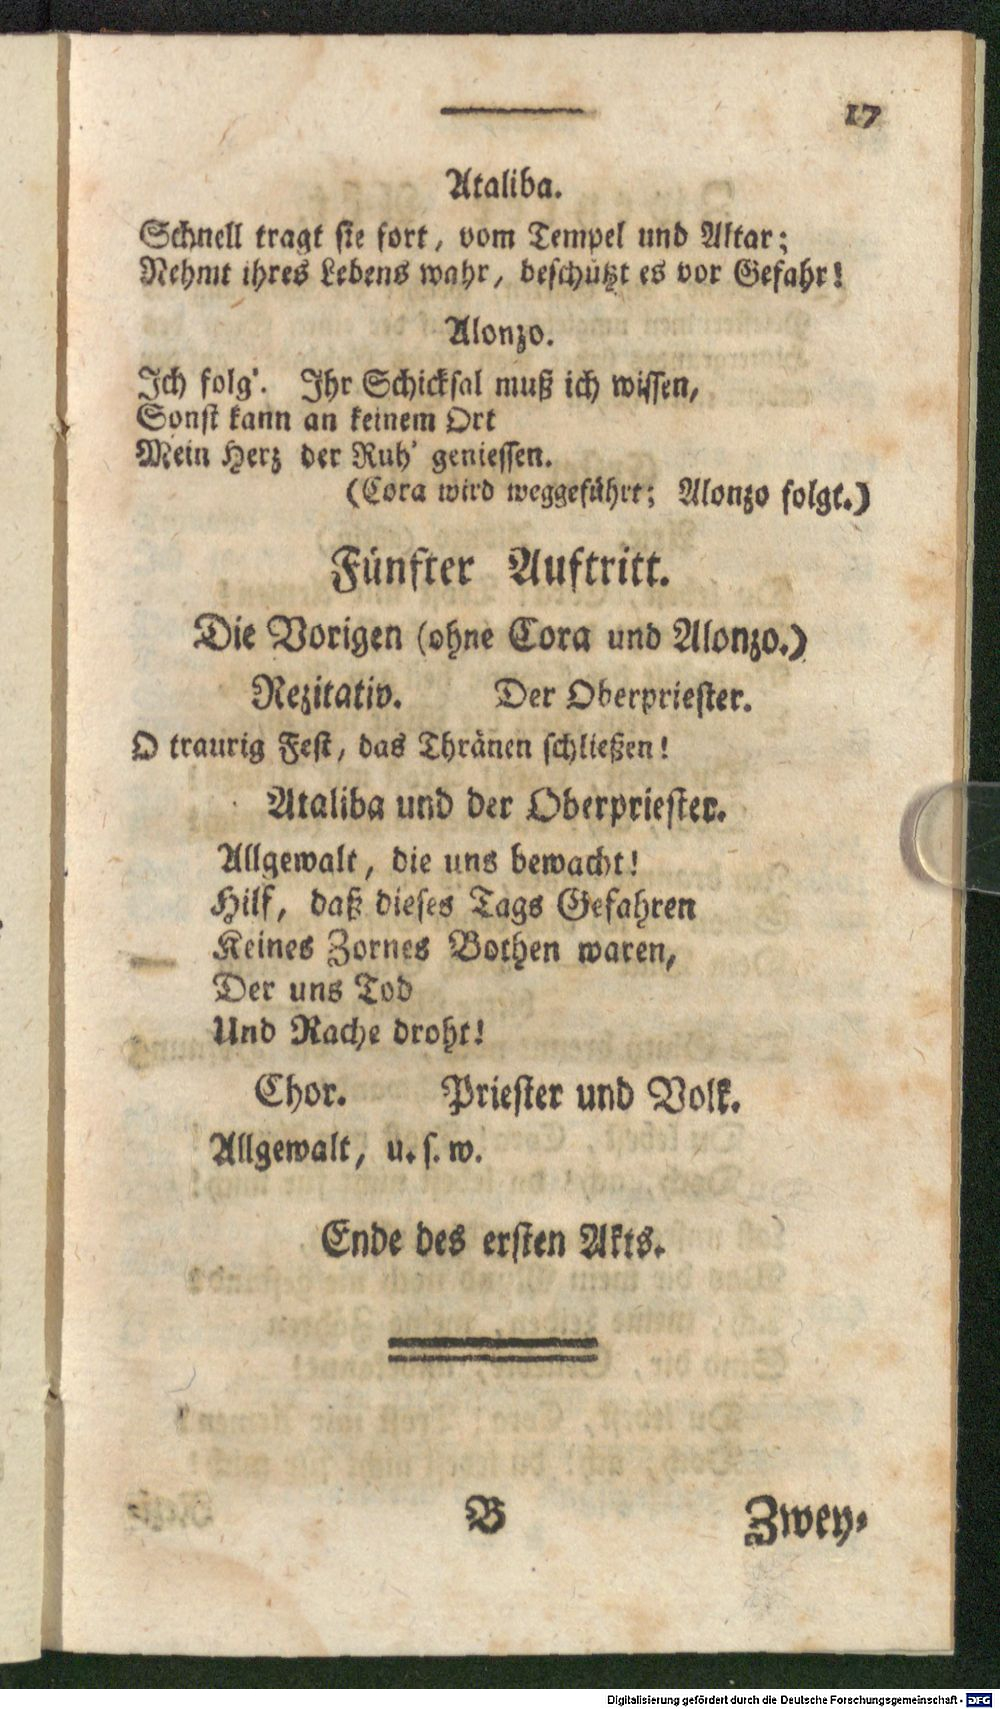 17
Ataliba.
Schnell tragt sie fort, vom Tempel und Altar;
Nehmt ihres Lebens wahr, beschützt es vor Gefahr!
Alonzo.
Ich folg'. Ihr Schicksal muß ich wissen,
Sonst kann an keinem Ort
Mein Herz der Ruh' geniessen.
(Cora wird weggeführt; Alonzo folgt.)
Fünfter Auftritt.
Die Vorigen (ohne Cora und Alonzo.)
Rezitativ. Der Oberpriester.
O traurig Fest, das Thränen schließen!
Ataliba und der Oberpriester.
Allgewalt, die uns bewacht!
Hilf, daß dieses Tags Gefahren
Keines Zornes Bothen waren,
Der uns Tod
Und Rache droht!
Chor. Priester und Volk.
Allgewalt, u. s. w.
Ende des ersten Akts.
B Zwey-
Digitalisierung gefördert durch die Deutsche Forschungsgemeinschaft - DFG